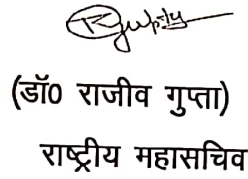 (डॉ0 राजीव गुप्ता)
राष्ट्रीय महासचिव